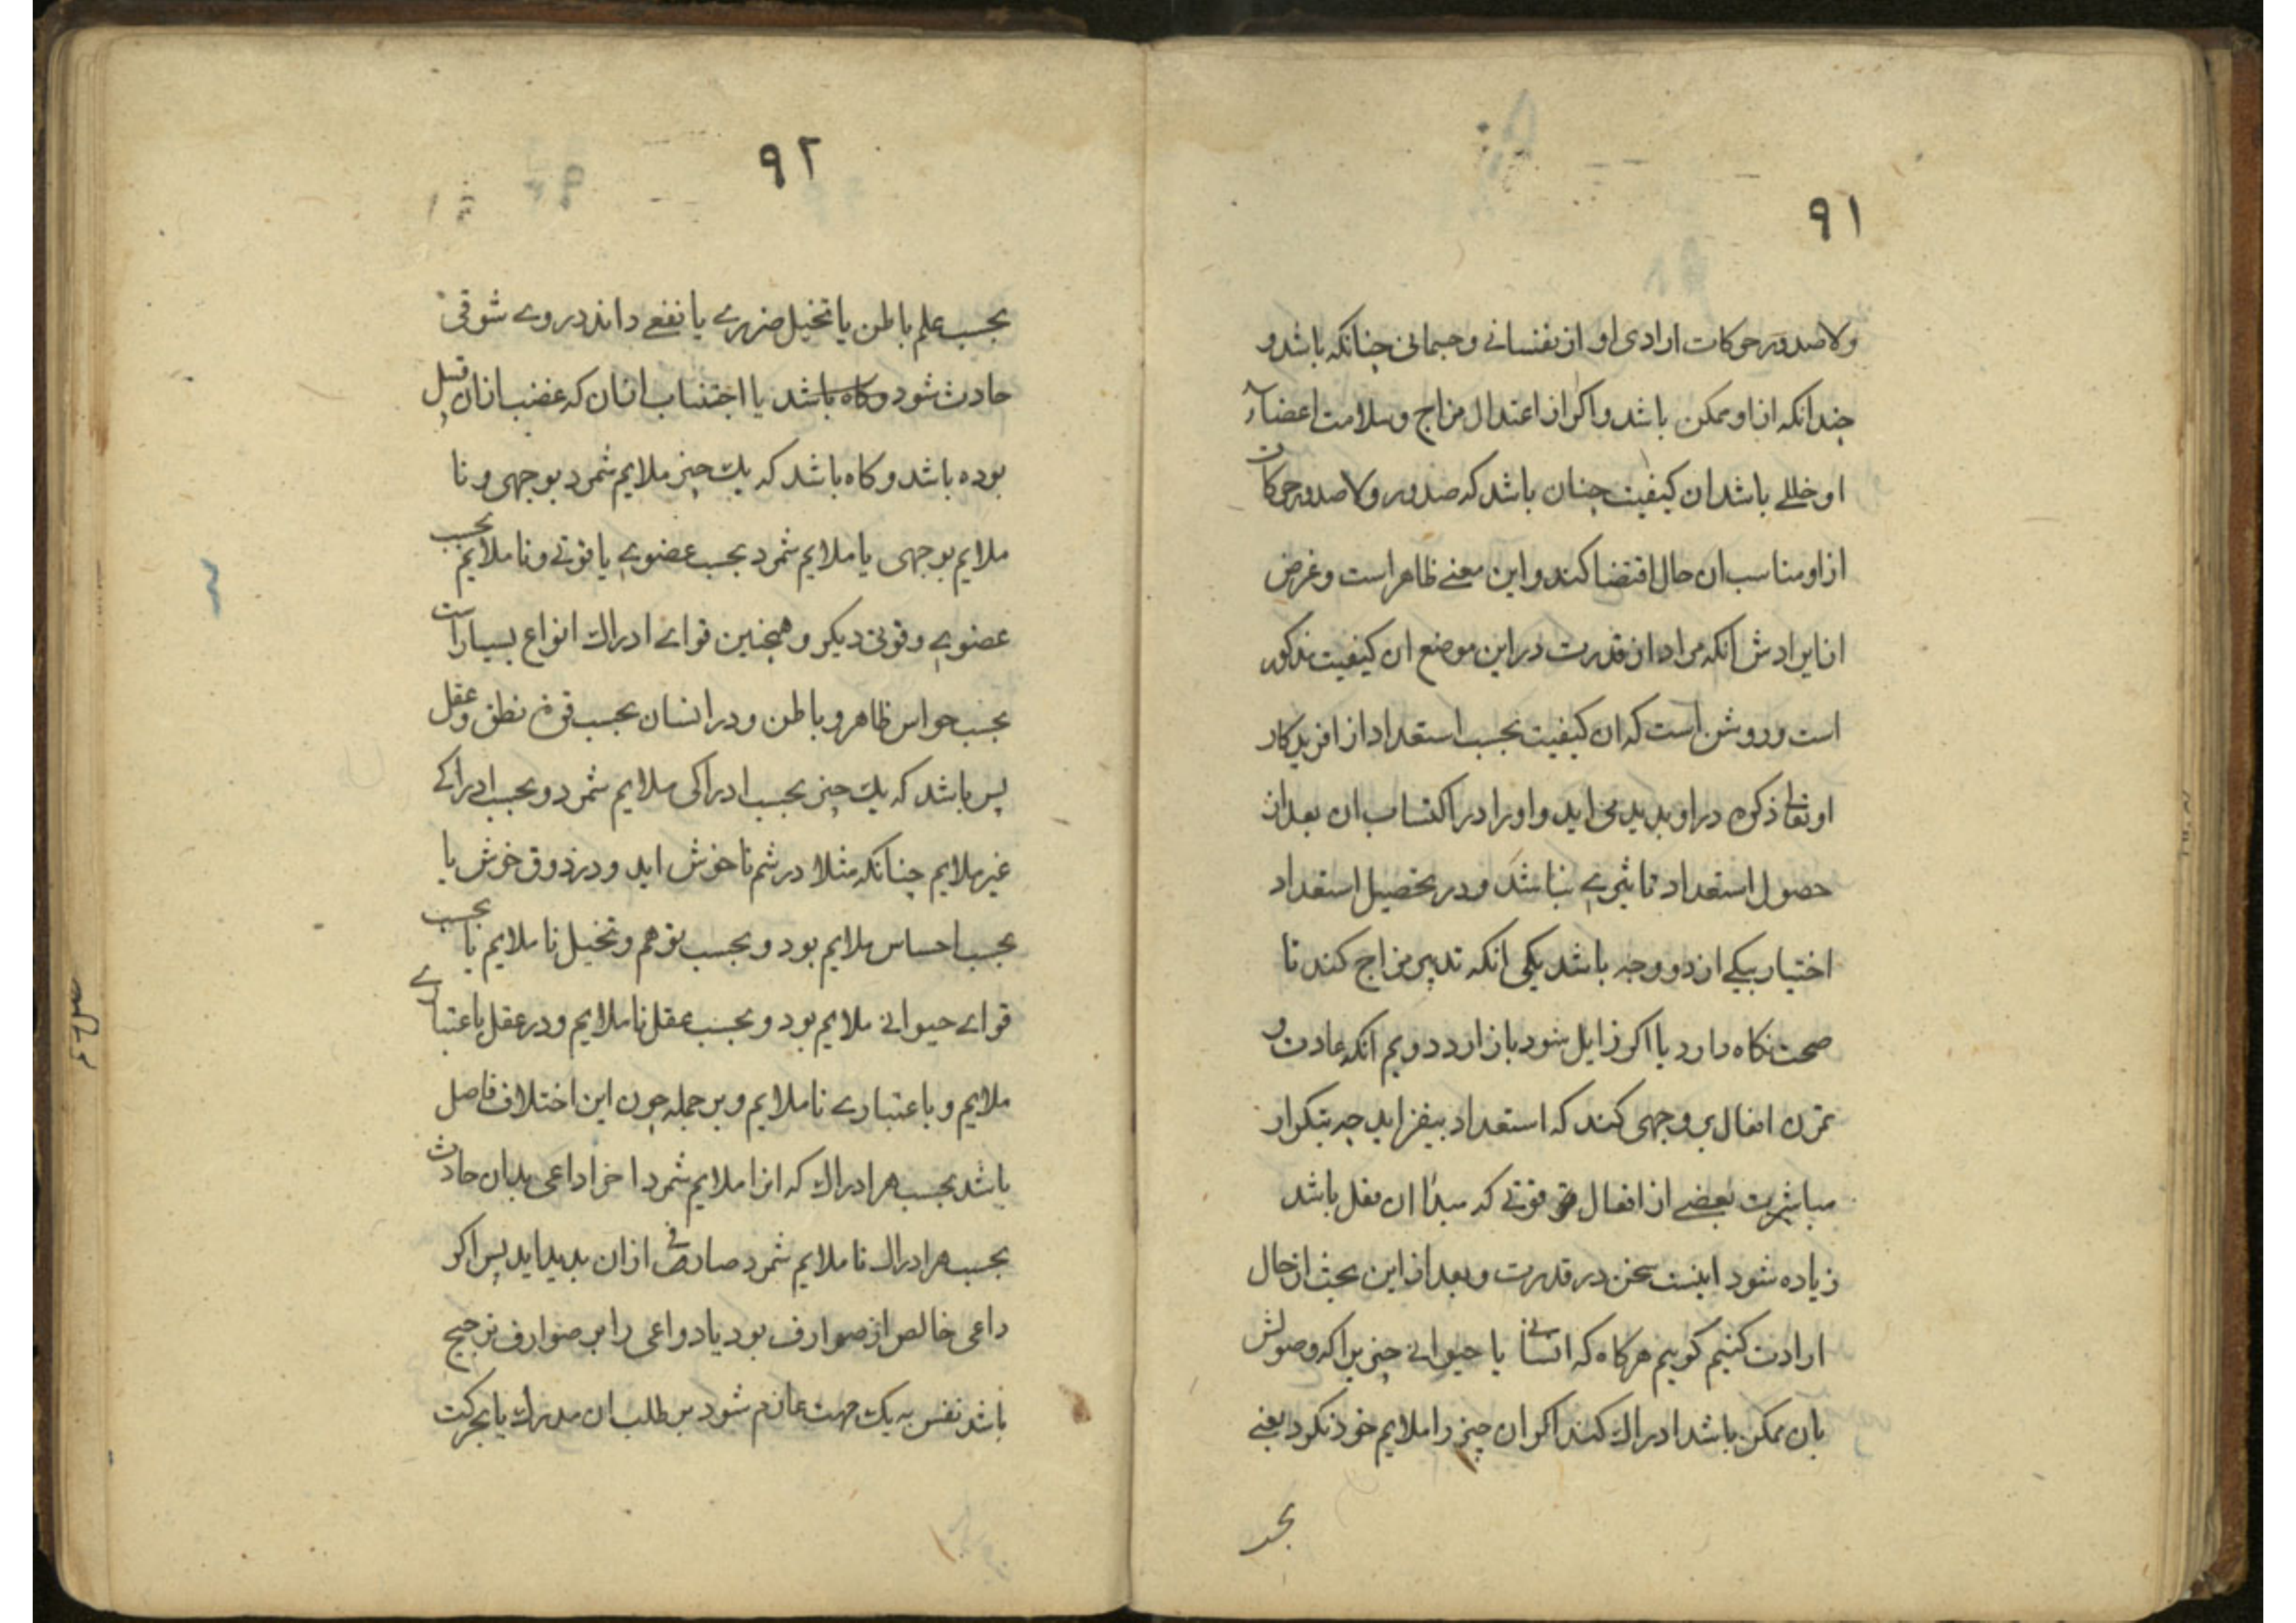 ۹۱
ولاصدور حرکات ارادی او از نفسانے وجسمانی چنانکه باشد و
چندانکه از او ممکن باشد واکر از اعتدال مزاج وسلامت اعضاء
او خللے باشد ان کیفیت چنان باشد که صدور ولا صدور حرکات
از او مناسب ان حال اقتضا کند واین معنے ظاهر است وغرض
از ایرادش انکه مراد از قدرت در این موضع ان کیفیت مذکور
است وروشن است که ان کیفیت بحسب استعداد از افریدکار
او تعالی ذکره در او پدید می اید واو را در اکتساب ان بعد از
حصول استعداد تاثیرے نباشد ودر تحصیل استعداد
اختیار بیکے از دو وجه باشد یکی انکه تدبیر مزاج کند تا
صحت نکاه دارد یا اکر زایل شود باز ارد دویم انکه عادت و
تمرن افعال بر وجهی کند که استعداد بیفزاید چه بتکرار
مباشرت بعضے از افعال قوتے که مبدأ ان فعل باشد
زیاده شود اینست سخن در قدرت وبعد از این بحث از حال
ارادت کنیم کوییم هرکاه که انسانے یا حیوانے چیزیرا که وصولش
بان ممکن باشد ادراک کند اکر ان چیز را ملایم خود نکرد یعنے
بحسـ
۹۲
بحسب علم باطن یا تخیل ضررے یا نفعے داند در وے شوقی
حادث شود وکاه باشد یا اجتناب ازان که غضب ازان قبیل
بوده باشد وکاه باشد که یك چیز ملایم شمرد بوجهی ونا
ملایم بوجهی یا ملایم شمرد بحسب عضوے یا قوتے ونا ملایم بحسب
عضوے وقوتی دیکر وهمچنین قواے ادراك انواع بسیار است
بحسب حواس ظاهر وباطن ودر انسان بحسب قوة نطق وعقل
پس باشد که یك چیز بحسب ادراکی ملایم شمرد وبحسب ادراکے
غیر ملایم چنانکه مثلا در شم ناخوش اید ودر ذوق خوش یا
بحسب احساس ملایم بود وبحسب توهم وتخیل نا ملایم یا بحسب
قواے حیوانے ملایم بود وبحسب عقل نا ملایم ودر عقل باعتبارے
ملایم وباعتبارے نا ملایم وبر جمله چون این اختلاف حاصل
باشد بحسب هر ادراك که انرا ملایم شمرد داعی بدان حادث
بحسب هر ادراك نا ملایم شمرد صارفی ازان پدید اید پس اکر
داعی خالص از صوارف بود یا دواعی را بر صوارف ترجیح
باشد نفس به یک جهت عازم شود بر طلب ان مدرك یا بحرکت